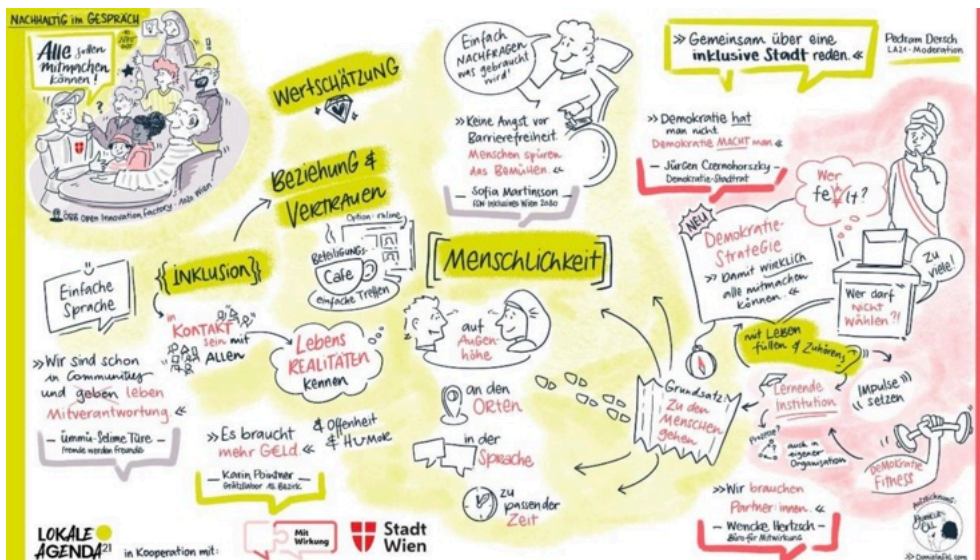 NACHHALTIG im GESPRÄCH
Alle sollen
mitmachen
können!
?
ÖBB Open Innovation Factory
Wien
WERTSCHÄTZUNG
BEZIEHUNG &
VERTRAUEN
{INKLUSION}
Einfache
Sprache
in
KONTAKT
sein mit
ALLEN
Option: online
BETEILIGUNGS-
Cafe
einfache Treffen
Lebens
REALITÄTEN
kennen
»Wir sind schon
in Communities
und geben leben
Mitverantwortung.«
– Ümmü-Selime Türe –
Fremde werden Freunde
»Es braucht
mehr G€LD«
& Offenheit
& HUMOR
– Karin
Grätzllabor 15. Bezirk
Einfach
NACHFRAGEN
was gebraucht
wird!
»Keine Angst vor
Barrierefreiheit.
Menschen spüren
das Bemühen.«
– Sofia Martinsson
Inklusives Wien 2030
[MENSCHLICHKEIT]
auf
AUGEN-
höhe
an den
ORTEN
in der
Sprache
zu
passender
Zeit
Grundsatz:
Zu den
MENSCHEN
gehen
» Gemeinsam über eine
inklusive Stadt reden. «
Pedram Dersch
LA21-Moderation
»Demokratie hat
man nicht
Demokratie MACHT man«
– Jürgen Czernohorszky –
Demokratie-Stadtrat
NEU
DEMOKRATIE-
STRATEGIE
»Damit wirklich
alle mitmachen
können.«
Wer
fehlt?
zu
viele!
Wer darf
nicht
wählen?!
mit Leben
füllen & Zuhören
Lernende
Institution
IMPULSE
setzen
Prozesse?
auch in
eigener
Organisation
DEMOKRATIE
FITNESS
»Wir brauchen
Partner:innen.«
– Wencke Hertzsch –
Büro für Mitwirkung
LOKALE
AGENDA21
in Kooperation mit:
Mit
Wirkung
Stadt
Wien